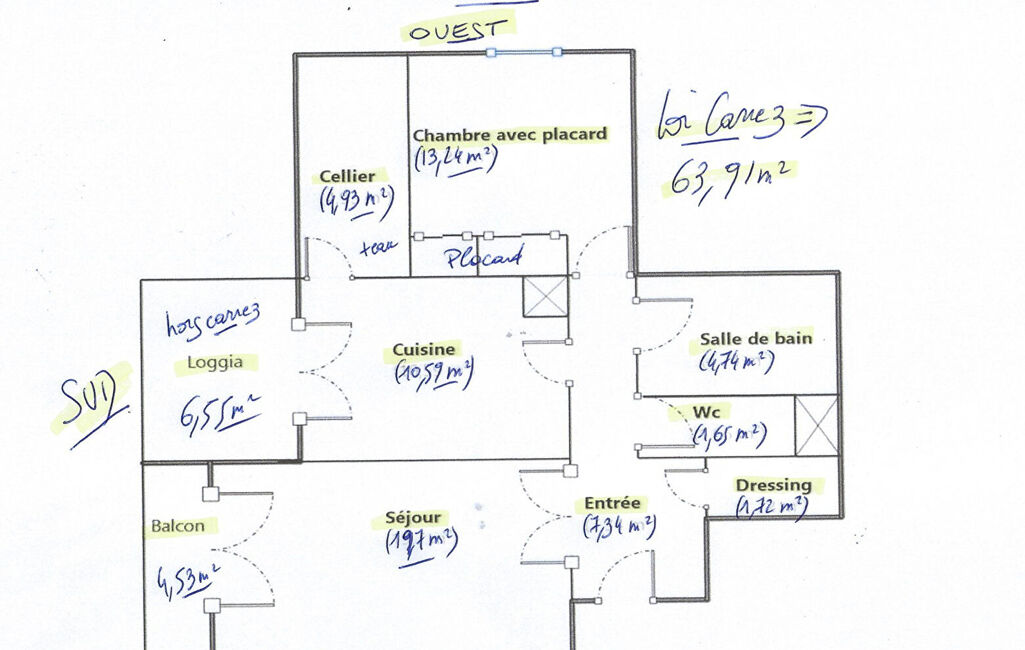 OUEST
Loi Carrez =>
63,91 m²
Chambre avec placard
(13,24 m²)
Cellier
(4,93 m²)
Placard
hors carrez
Loggia
6,55 m²
SUD
Cuisine
(10,59 m²)
Salle de bain
(4,74 m²)
Wc
(1,65 m²)
Dressing
(1,72 m²)
Entrée
(7,34 m²)
Séjour
(19,7 m²)
Balcon
4,53 m²